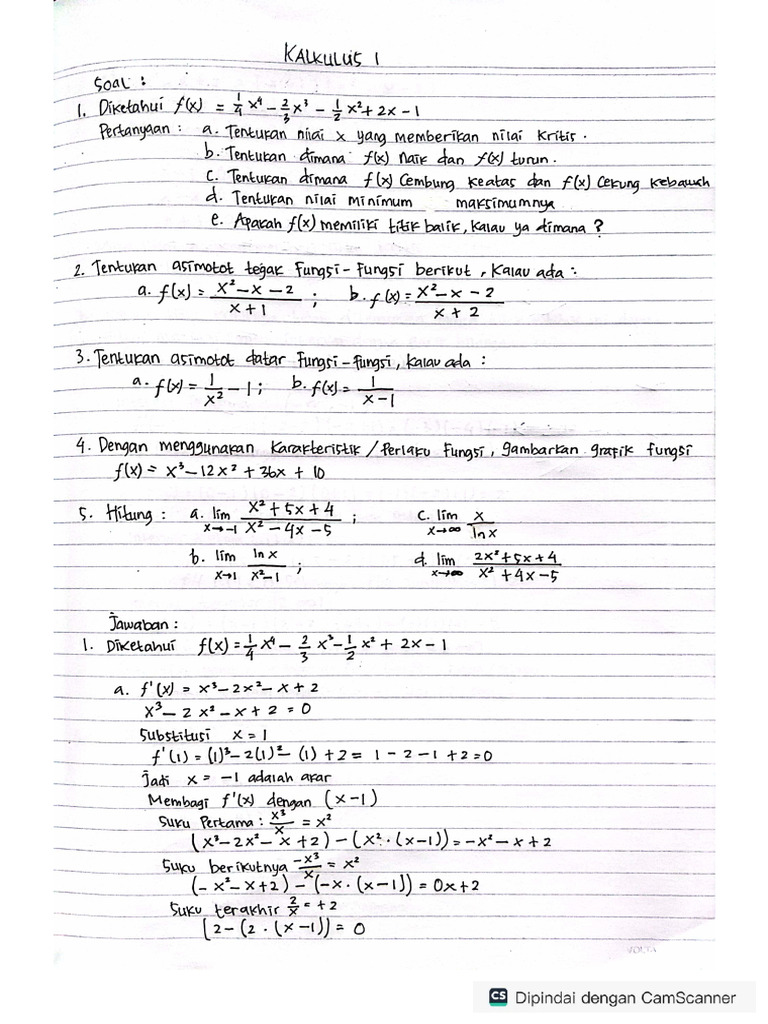 KALKULUS 1
Soal :
1. Diketahui f(x) = 1/4 x⁴ - 2/3 x³ - 1/2 x² + 2x - 1
Pertanyaan : a. Tentukan nilai x yang memberikan nilai kritis.
b. Tentukan dimana f(x) naik dan f(x) turun.
c. Tentukan dimana f(x) Cembung keatas dan f(x) Cekung kebawah
d. Tentukan nilai minimum maksimumnya
e. Apakah f(x) memiliki titik balik, kalau ya dimana ?
2. Tentukan asimotot tegak Fungsi-Fungsi berikut, kalau ada :
a. f(x) = (x² - x - 2)/(x + 1) ; b. f(x) = (x² - x - 2)/(x + 2)
3. Tentukan asimotot datar Fungsi-fungsi, kalau ada :
a. f(x) = 1/x² - 1 ; b. f(x) = 1/(x - 1)
4. Dengan menggunakan Karakteristik / Perlaku Fungsi, gambarkan grafik fungsi
f(x) = x³ - 12x² + 36x + 10
5. Hitung : a. lim x→-1 (x² + 5x + 4)/(x² - 4x - 5) ; c. lim x→∞ x/ln x
b. lim x→1 ln x/(x² - 1) ; d. lim x→∞ (2x² + 5x + 4)/(x² + 4x - 5)
Jawaban :
1. Diketahui f(x) = 1/4 x⁴ - 2/3 x³ - 1/2 x² + 2x - 1
a. f'(x) = x³ - 2x² - x + 2
x³ - 2x² - x + 2 = 0
Substitusi x = 1
f'(1) = (1)³ - 2(1)² - (1) + 2 = 1 - 2 - 1 + 2 = 0
Jadi x = -1 adalah akar
Membagi f'(x) dengan (x - 1)
Suku Pertama : x³/x = x²
(x³ - 2x² - x + 2) - (x² · (x - 1)) = -x² - x + 2
Suku berikutnya -x³/x = x²
(-x² - x + 2) - (-x · (x - 1)) = 0x + 2
Suku terakhir 2/x = +2
[2 - (2 · (x - 1)) = 0
VOLTA
CS Dipindai dengan CamScanner